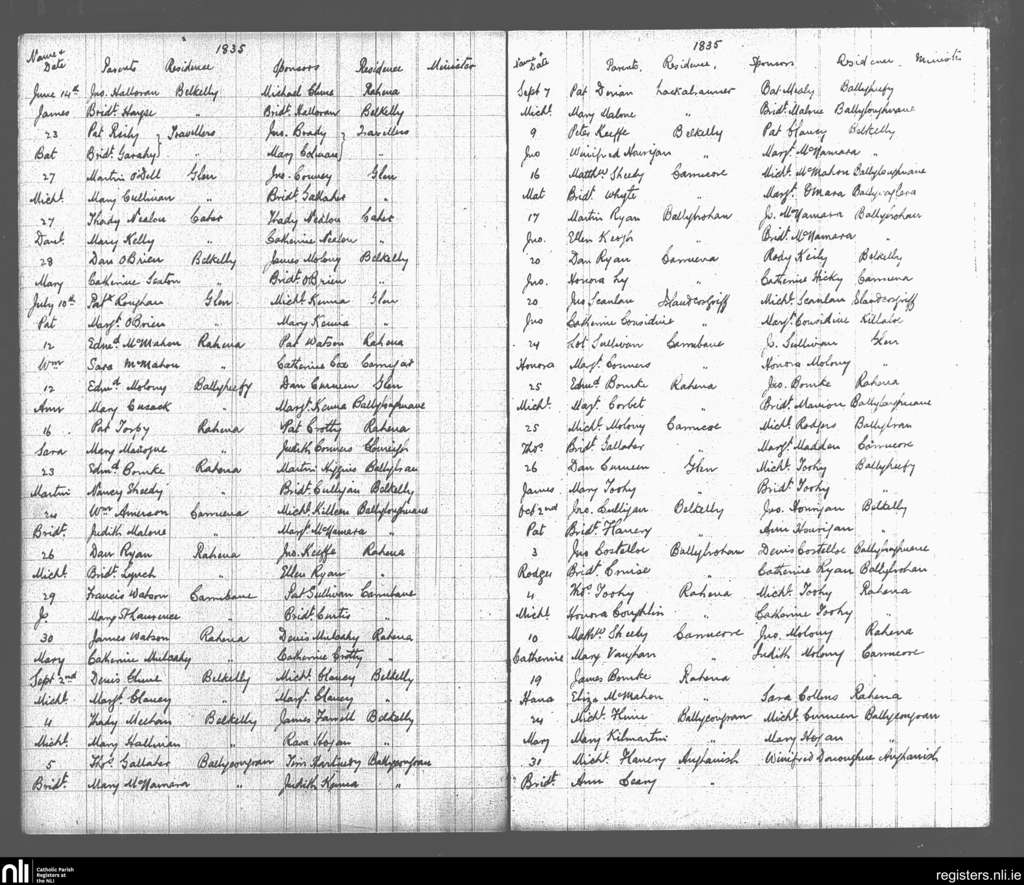 1835
Name & Date Parents Residence Sponsors Residence Minister
June 14th Jno. Halloran Belkelly Michael Clune Rahena
James Bridt. Hayse " Bridt. Halloran Belkelly
23 Pat Reily Travellers Jno. Brady Travellers
Bat Bridt. Garahy " Mary Colman "
27 Martin O'Dell Glen Jno. Conney Glen
Micht. Mary Cullinan " Bridt. Gallaher "
27 Thady Nealon Caher Thady Nealon Caher
Danl. Mary Kelly " Catherine Nealon "
28 Dan O'Brien Belkelly James Molony Belkelly
Mary Catherine Sexton " Bridt. O'Brien "
July 10th Patk Loughan Glen Micht. Kenna Glen
Pat Margt. O'Brien " Mary Kenna "
12 Edmd. McMahon Rahena Pat Watson Rahena
Wm Sara McMahon " Catherine Cox
12 Edmd. Molony Dan Curneen Glen
Ann Mary Cusack " Margt. Kenna Ballyloughnane
16 Pat Torpy Rahena Pat Crotty Rahena
Sara Mary " Judith Conners
23 Edmd. Bourke Rahena Martin Higgins Ballybran
Martin Nancy Sheedy " Bridt. Belkelly
24 Wm Amerson Micht. Killeen Ballyloughnane
Bridt. Judith Malone " Margt. McNamara "
26 Dan Ryan Rahena Jno. Keeffe Rahena
Micht. Bridt. Lynch " Ellen Ryan "
29 Francis Watson Carnbane Pat Sullivan Carnbane
J. Mary St Laurence " Bridt. Curtis "
30 James Watson Rahena Denis Mulcahy Rahena
Mary Catherine Mulcahy " Catherine Crotty "
Sept 2nd Denis Clune Belkelly Micht. Clancy Belkelly
Micht. Margt. Clancy " Margt. Clancy "
4 Thady Meehan Belkelly James Farrell Belkelly
Micht. Mary Hallinan " Rosa Hogan "
5 Thos. Gallaher Ballycongran Tim Ballycongran
Bridt. Mary McNamara " Judith Kenna "
1835
Name & Date Parents. Residence. Sponsors Residence. Minister
Sept 7 Pat Dorian Lackabranner Bat Mealy
Micht. Mary Malone " Bridt. Malone Ballyloughnane
9 Peter Keeffe Belkelly Pat Clancy Belkelly
Jno Winifred Hourigan " Margt. McNamara "
16 Matthw Sheedy Carncore Micht. McMahon Ballyloughnane
Mat Bridt. Whyte " Margt. O'Mara
17 Martin Ryan Ballybrohan J. McNamara Ballybrohan
Jno. Ellen Keogh " Bridt. McNamara "
20 Dan Ryan Rody Keily Belkelly
Jno. Honora " Catherine Hickey
20 Jno Scanlan Islandcosgriff Micht. Scanlan Islandcosgriff
Jno Catherine Considine " Margt. Considine Killaloe
24 Pat Sullivan Carnbane J. Sullivan Glen
Honora Margt. Conners " Honora Molony "
25 Edmd Bourke Rahena Jno. Bourke Rahena
Micht. Margt. Corbet " Bridt. Ballyloughnane
25 Micht. Molony Carncore Micht. Rodgers Ballybran
Thos. Bridt. Gallaher " Margt. Madden Carncore
26 Dan Curneen Glen Micht. Toohy
James Mary Toohy " Bridt. Toohy "
Oct 2nd Jno. Culligan Belkelly Jno. Hourigan Belkelly
Pat Bridt. " Ann Hourigan "
3 Jno Costelloe Ballybrohan Denis Costelloe Ballyloughnane
Rodger Bridt Cruise " Catherine Ryan Ballybrohan
4 Thos. Toohy Rahena Micht. Toohy Rahena
Micht. Honora Coughlin " Catherine Toohy "
10 Matthw Sheedy Carncore Jno. Molony Rahena
Catherine Mary Vaughan " Judith Molony Carncore
19 James Bourke Rahena
Hana Eliza McMahon " Sara Collins Rahena
24 Micht. Ballycongran Micht. Curneen Ballycongran
Mary Mary Kilmartin " Mary Hogan "
31 Micht. Aughanish Winifred Donoughue Aughanish
Bridt. Ann Leary "
nli Catholic Parish
Registers at
the NLI
registers.nli.ie